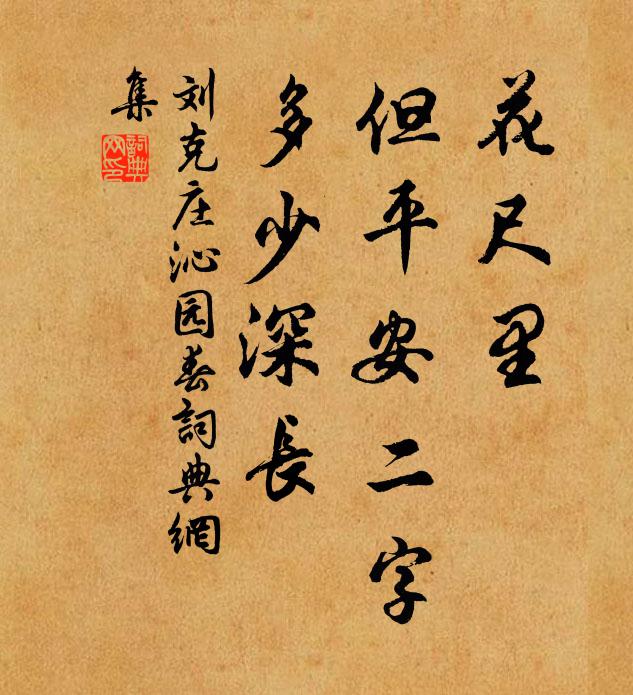 花尺里
但平安二字
多少深長
刘克庄沁园春詞典網
集
詞典
网印